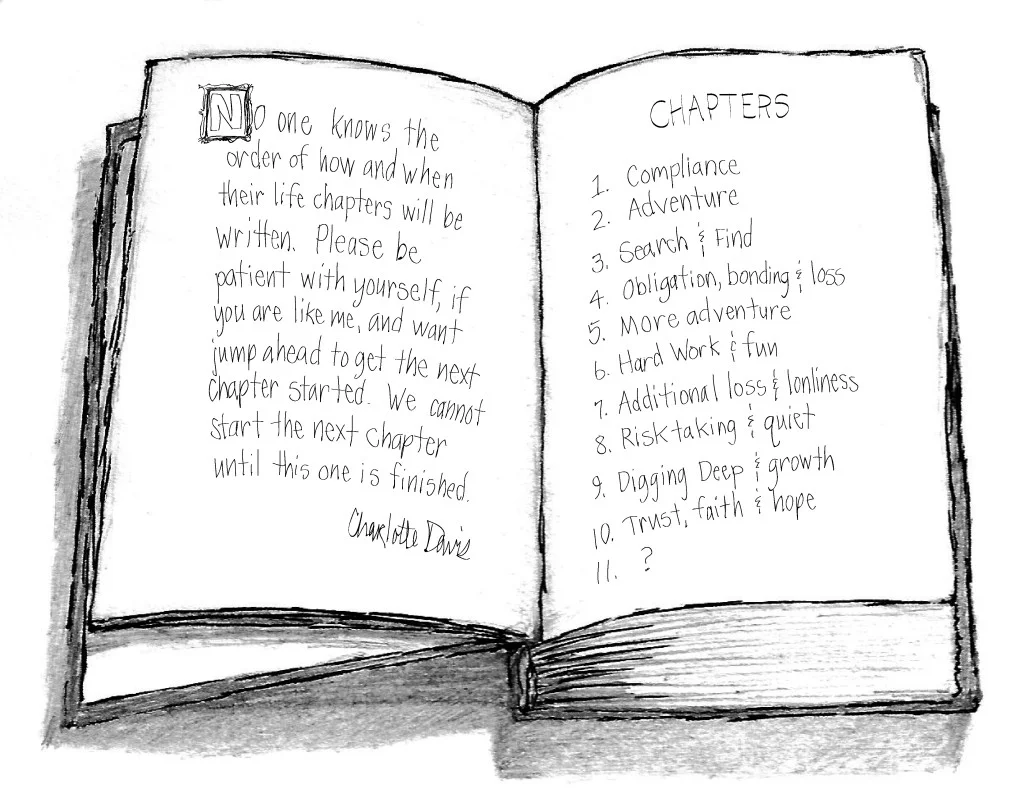 No one knows the
order of how and when
their life chapters will be
written. Please be
patient with yourself, if
you are like me, and want
jump ahead to get the next
chapter started. We cannot
start the next chapter
until this one is finished.
Charlotte Davis
CHAPTERS
1. Compliance
2. Adventure
3. Search & Find
4. Obligation, bonding & loss
5. More adventure
6. Hard Work & fun
7. Additional loss & lonliness
8. Risk taking & quiet
9. Digging Deep & growth
10. Trust, faith & hope
11. ?